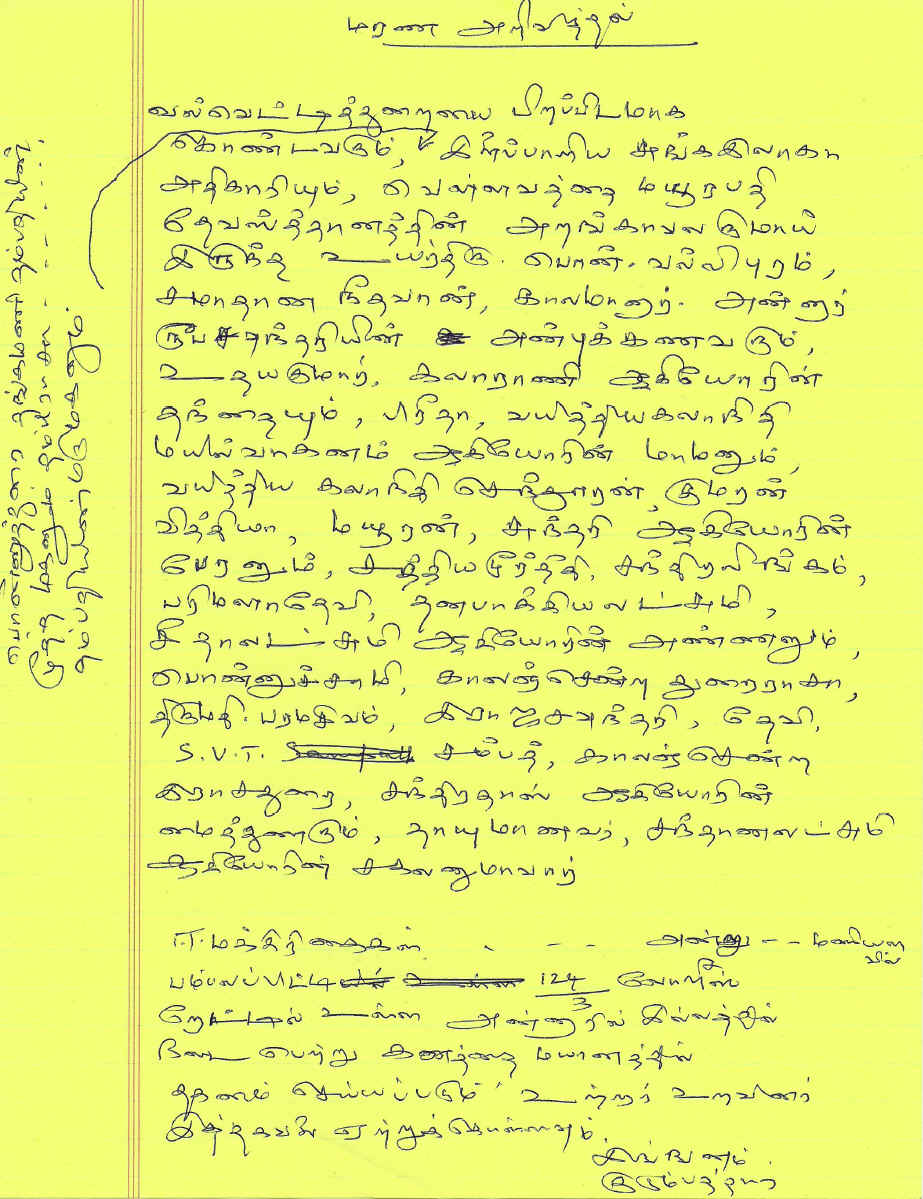 மரண அறிவித்தல்
வல்வெட்டித்துறையை பிறப்பிடமாக
கொண்டவரும், இளைப்பாறிய சுங்கஇலாகா
அதிகாரியும், வெள்ளவத்தை மயூரபதி
தேவஸ்த்தானத்தின் அறங்காவலருமாய்
இருந்த உயர்திரு. பொன். வல்லிபுரம்,
சமாதான நீதவான், காலமானார். அன்னார்
ரூபசுந்தரியின் அன்புக்கணவரும்,
உதயகுமார், கலாராணி ஆகியோரின்
தந்தையும், பிரீதா, வயித்தியகலாநிதி
மயில்வாகனம் ஆகியோரின் மாமனும்,
வயித்திய கலாநிதி செந்தூரன், குமரன்
வித்தியா, மயூரன், சுந்தரி ஆகியோரின்
பேரனும், சத்தியமூர்த்தி, சந்திரலிங்கம்,
பரிமளாதேவி, தனபாக்கியலட்சுமி,
சீதாலட்சுமி ஆகியோரின் அண்ணனும்,
பொன்னுச்சாமி, காலஞ்சென்ற துரைராசா,
திருமதி. பரமசிவம், இராஜசுந்தரி, தேவி,
S.V.T. சம்பத், காலஞ்சென்ற
இராசதுரை, சந்திரதாஸ் ஆகியோரின்
மைத்துனரும், தாயுமானவர், சந்தானலட்சுமி
ஆகியோரின் சகலனுமாவார்
ஈ.ர.மக்கிரியைகள் . - - அன்று - - மணியள
வில்
பம்பலப்பிட்டி 124/3 லோரிஸ்
றோட்டில் உள்ள அன்னாரில் இல்லத்தில்
நடை பெற்று கனத்தை மயானத்தில்
தகனம் செய்யப்படும் உற்றார் உறவினர்
இத்தகவலை ஏற்றுக்கொள்ளவும்.
இங்ஙனம்
குடும்பத்தார்
முத்த மகனும்
தம்பதியின் மருமகனும்.